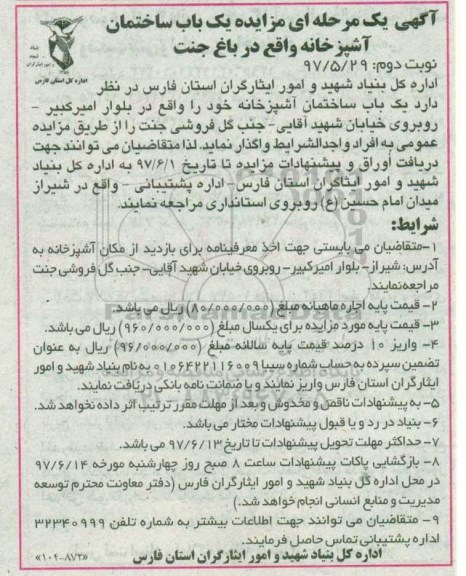 آگهی یک مرحله ای مزایده یک باب ساختمان
آشپزخانه واقع در باغ جنت
نوبت دوم: ۹۷/۵/۲۹
اداره کل بنیاد شهید و امور ایثارگران استان فارس در نظر
دارد یک باب ساختمان آشپزخانه خود را واقع در بلوار امیرکبیر -
روبروی خیابان شهید آقایی- جنب گل فروشی جنت را از طریق مزایده
عمومی به افراد واجدالشرایط واگذار نماید. لذا متقاضیان می توانند جهت
دریافت اوراق و پیشنهادات مزایده تا تاریخ ۹۷/۶/۱ به اداره کل بنیاد
شهید و امور ایثارگران استان فارس- اداره پشتیبانی - واقع در شیراز
میدان امام حسین (ع) روبروی استانداری مراجعه نمایند.
شرایط:
۱-متقاضیان می بایستی جهت اخذ معرفینامه برای بازدید از مکان آشپزخانه به
آدرس: شیراز- بلوار امیرکبیر- روبروی خیابان شهید آقایی- جنب گل فروشی جنت
مراجعه نمایند.
۲- قیمت پایه اجاره ماهیانه مبلغ (۸۰/۰۰۰/۰۰۰) ریال می باشد.
۳- قیمت پایه مورد مزایده برای یکسال مبلغ (۹۶۰/۰۰۰/۰۰۰) ریال می باشد.
۴- واریز ۱۰ درصد قیمت پایه سالانه مبلغ (۹۶/۰۰۰/۰۰۰) ریال به عنوان
تضمین سپرده به حساب شماره سیبا ۰۱۰۶۴۲۲۱۱۶۰۰۹ به نام بنیاد شهید و امور
ایثارگران استان فارس واریز نمایند و یا ضمانت نامه بانکی دریافت نمایند.
۵- به پیشنهادات ناقص و مخدوش و بعد از مهلت مقرر ترتیب اثر داده نخواهد شد.
۶- بنیاد در رد و یا قبول پیشنهادات مختار می باشد.
۷- حداکثر مهلت تحویل پیشنهادات تا تاریخ ۹۷/۶/۱۳ می باشد.
۸- بازگشایی پاکات پیشنهادات ساعت ۸ صبح روز چهارشنبه مورخه ۹۷/۶/۱۴
در محل اداره کل بنیاد شهید و امور ایثارگران فارس (دفتر معاونت محترم توسعه
مدیریت و منابع انسانی انجام خواهد شد.)
۹- متقاضیان می توانند جهت اطلاعات بیشتر به شماره تلفن ۳۲۳۴۰۹۹۹
اداره پشتیبانی تماس حاصل فرمایند.
اداره کل بنیاد شهید و امور ایثارگران استان فارس
«۱۰۴-۸۷۲»
بنیاد
شهید
و امور ایثارگران
اداره کل استان فارس